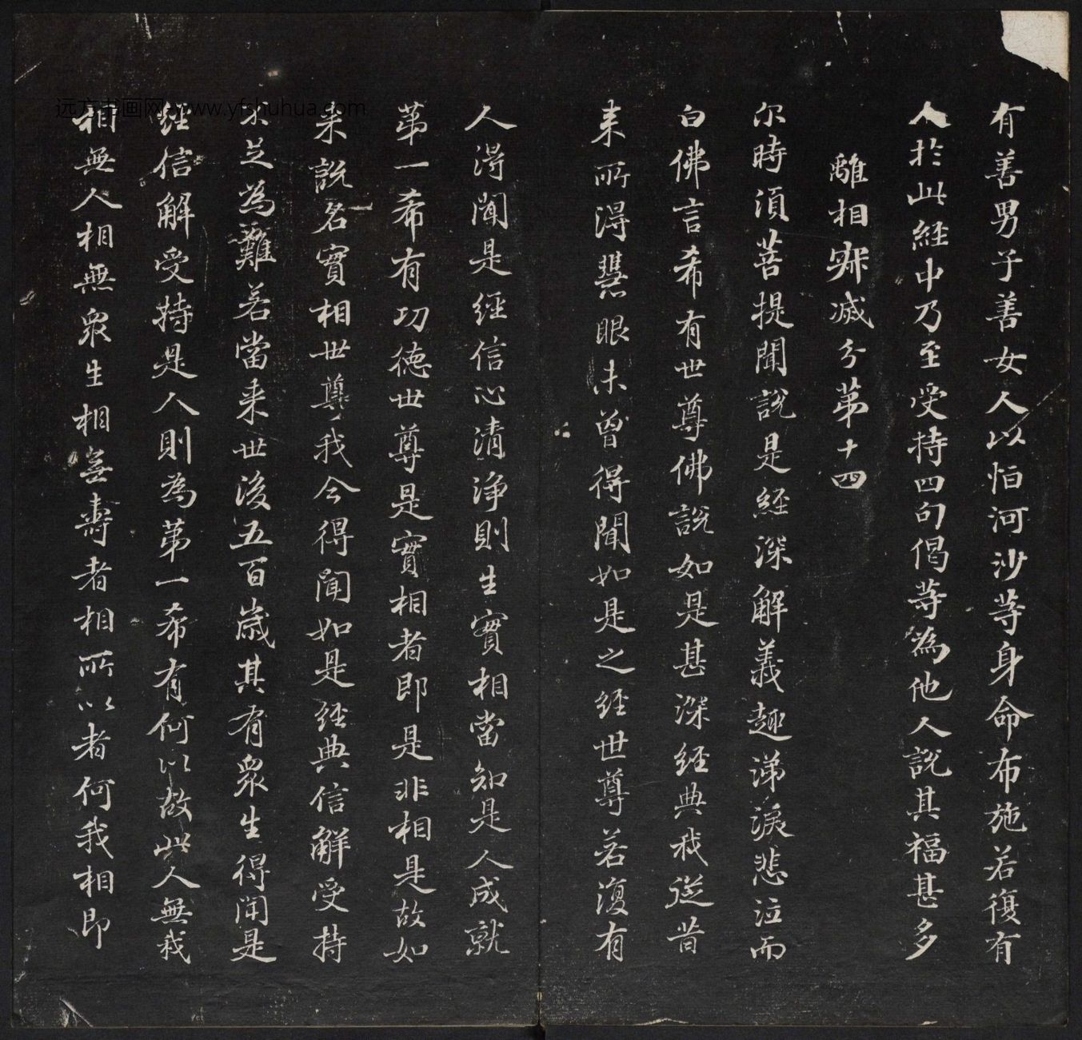 有善男子善女人以恒河沙等身命布施若復有
人於此經中乃至受持四句偈等為他人說其福甚多
離相寂滅分第十四
尔時須菩提聞說是經深解義趣涕淚悲泣而
白佛言希有世尊佛說如是甚深經典我從昔
来所得慧眼未曾得聞如是之經世尊若復有
人得聞是經信心清淨則生實相當知是人成就
第一希有功德世尊是實相者即是非相是故如
来說名實相世尊我今得聞如是經典信解受持
不足為難若當来世後五百歲其有眾生得聞是
經信解受持是人則為第一希有何以故此人無我
相無人相無眾生相無壽者相所以者何我相即
远方书画网 www.yfshuhua.com